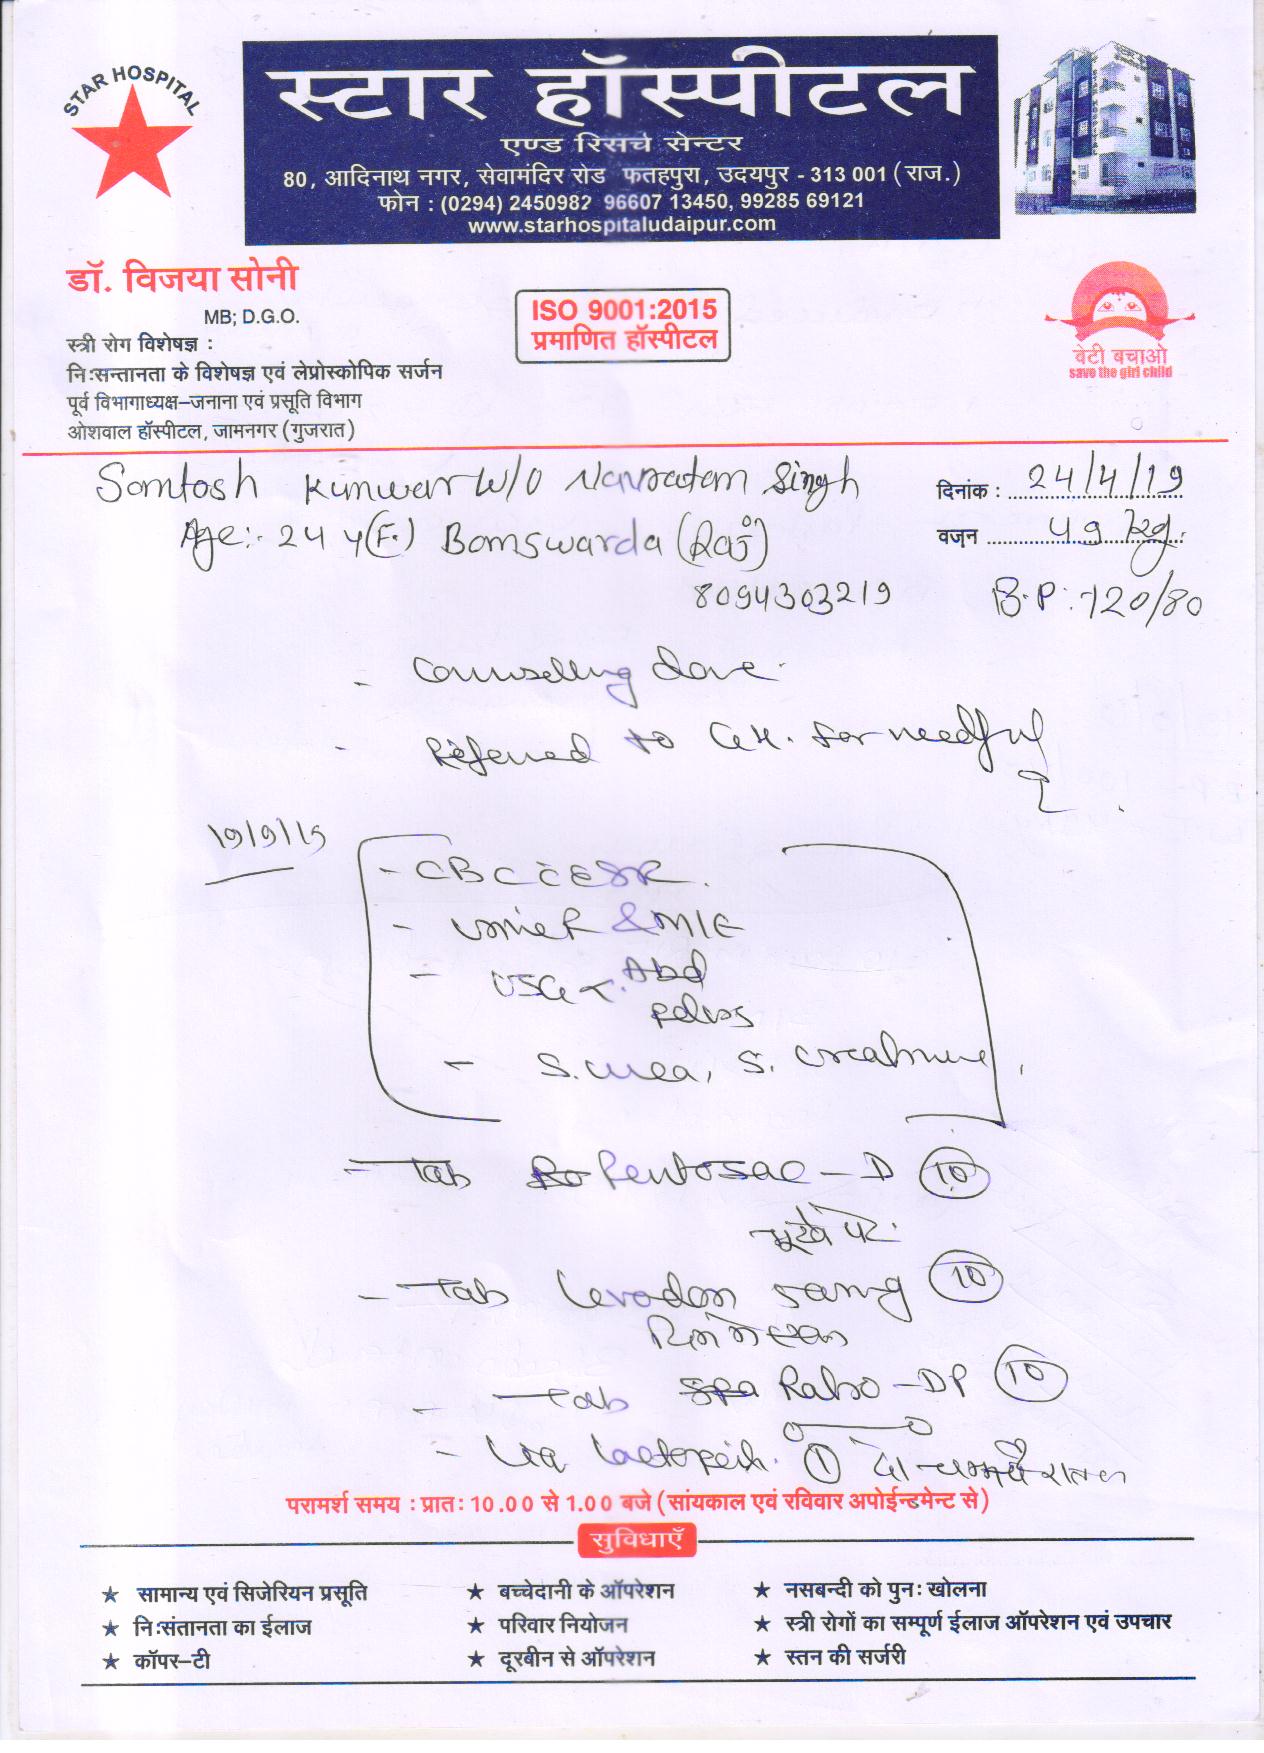 STAR HOSPITAL
स्टार हॉस्पीटल
एण्ड रिसर्च सेन्टर
80, आदिनाथ नगर, सेवामंदिर रोड फतहपुरा, उदयपुर - 313 001 (राज.)
फोन : (0294) 2450982 96607 13450, 99285 69121
www.starhospitaludaipur.com
डॉ. विजया सोनी
MB; D.G.O.
स्त्री रोग विशेषज्ञ :
निःसन्तानता के विशेषज्ञ एवं लेप्रोस्कोपिक सर्जन
पूर्व विभागाध्यक्ष–जनाना एवं प्रसूति विभाग
ओशवाल हॉस्पीटल, जामनगर (गुजरात)
ISO 9001:2015
प्रमाणित हॉस्पीटल
बेटी बचाओ
save the girl child
Santosh Kunwar W/O Navratan Singh
दिनांक : 24/4/19
Age:- 24 y (F.) Banswarda (Raj)
वजन 49 Kg.
8094303219
B.P:-120/80
- Counselling done.
- Referred to GH. for needful
19/9/19
- CBC c̄ ESR.
- Urine R & M/E
- USG Abd
Pelvis
- S. urea, S. creatinine
- Tab Pentosac-D 10
भूखे पेट
- Tab 10
दिन में एक
- Tab Rabo-DP 10
- 1 दो चम्मच रात
परामर्श समय : प्रातः 10.00 से 1.00 बजे (सांयकाल एवं रविवार अपोईन्डमेन्ट से)
सुविधाएँ
★ सामान्य एवं सिजेरियन प्रसूति ★ बच्चेदानी के ऑपरेशन ★ नसबन्दी को पुनः खोलना
★ निःसंतानता का ईलाज ★ परिवार नियोजन ★ स्त्री रोगों का सम्पूर्ण ईलाज ऑपरेशन एवं उपचार
★ कॉपर–टी ★ दूरबीन से ऑपरेशन ★ स्तन की सर्जरी